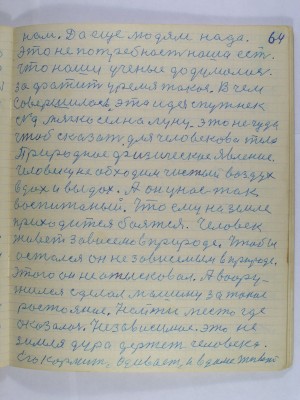 нам. Да еще людям нада. 64
Это не потребност наша ест.
Что наши ученые додумолис
задратит время такое. В чем
совершилось, это идея спутнек
сел на луну. это не чудо
чтоб сказат для человекова тело
Природное физическое явление.
Человеку необходим чистый воздух
вдох и выдох. А он у нас так
воспитаный. Что ему на земле
приходится боятся. Человек
живет зависемо в природе. Чтобы
остался он не зависемым в природе.
Этого он не отысковал. А воору-
жился сделал машину за такое
растояние. Найти место где
оказался. Независимое. это не
земля дура держет человека.
Его кормит, одивает, и в доме живет